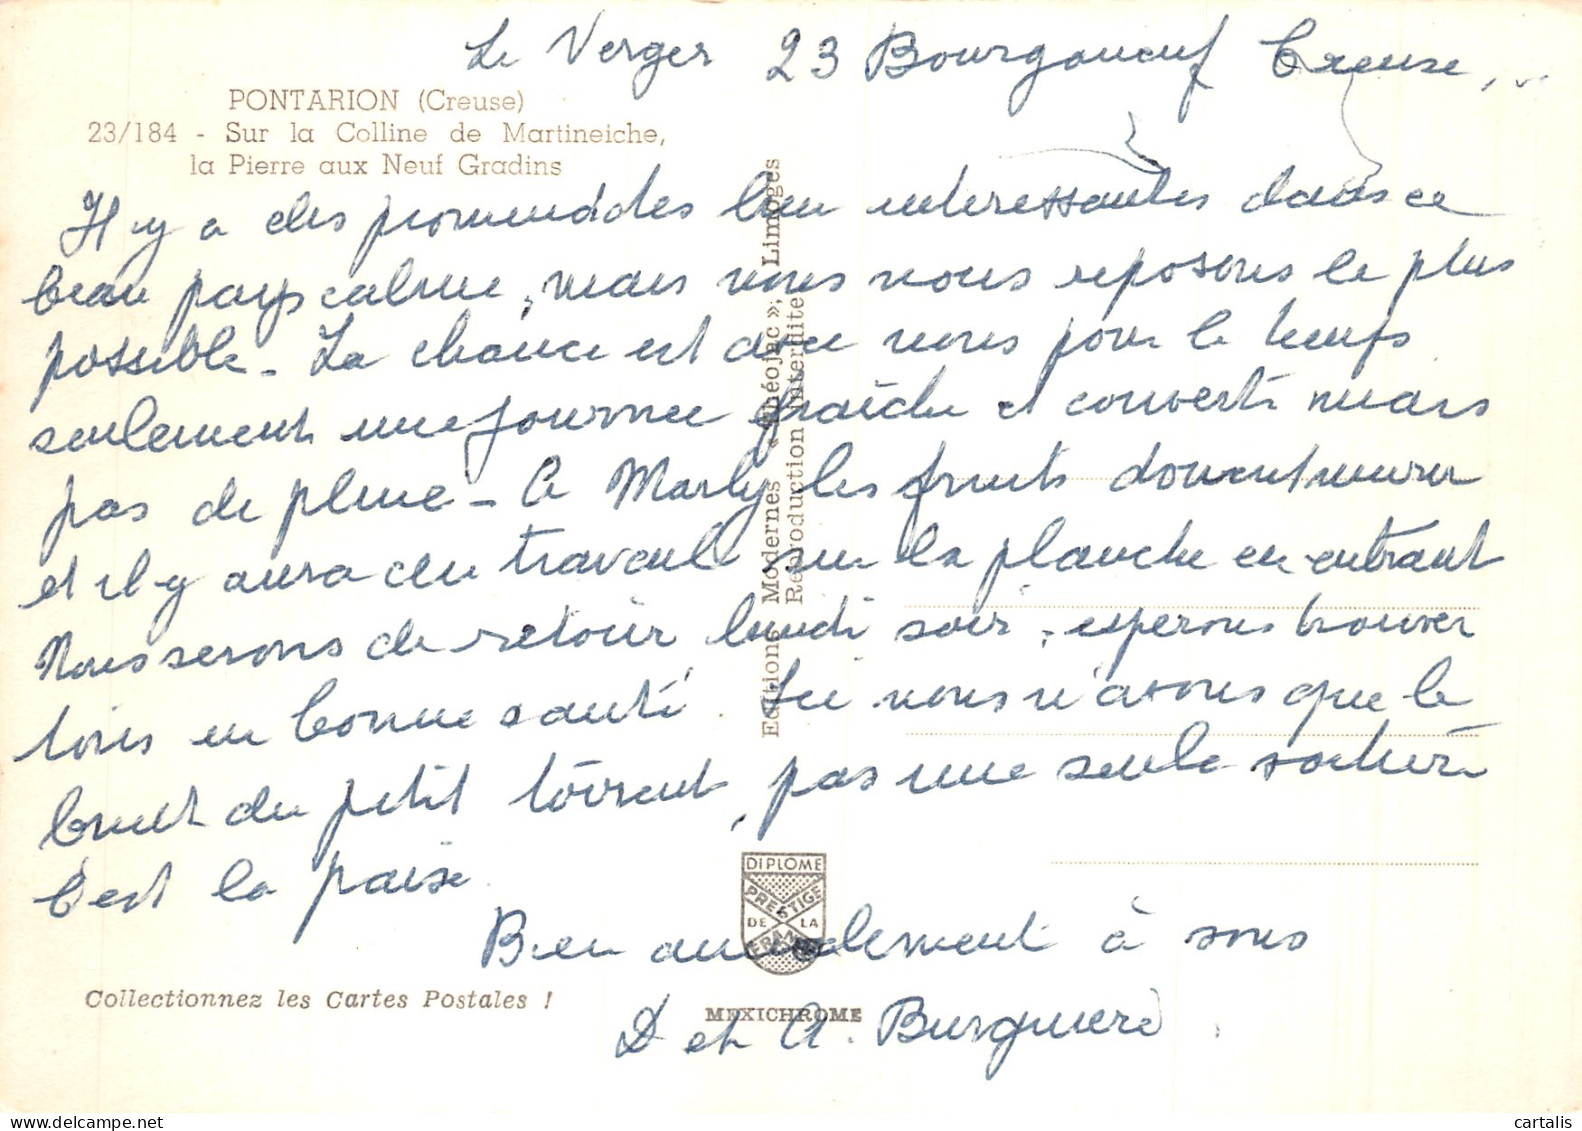 Le Verger 23 Bourganeuf Creuse,
PONTARION (Creuse)
23/184 - Sur la Colline de Martineiche,
la Pierre aux Neuf Gradins
Il y a des promenades bien interessantes dans ce
beau pays calme, mais nous nous reposons le plus
possible - La chance est avec nous pour le temps
seulement une journee fraîche et couverte mais
pas de pluie - A Marly les fruits doivent murir
et il y aura du travail sur la planche en entrant
Nous serons de retour lundi soir, esperons trouver
tous en bonne santé. Ici nous n'avons que le
bruit du petit torrent, pas une seule voiture
C'est la paix
Bien amicalement à vous
D et A. Burguiere.
Editions Modernes « Théojac », Limoges
Reproduction interdite
DIPLOME
PRESTIGE
DE LA
FRANCE
Collectionnez les Cartes Postales !
MEXICHROME
cartalis